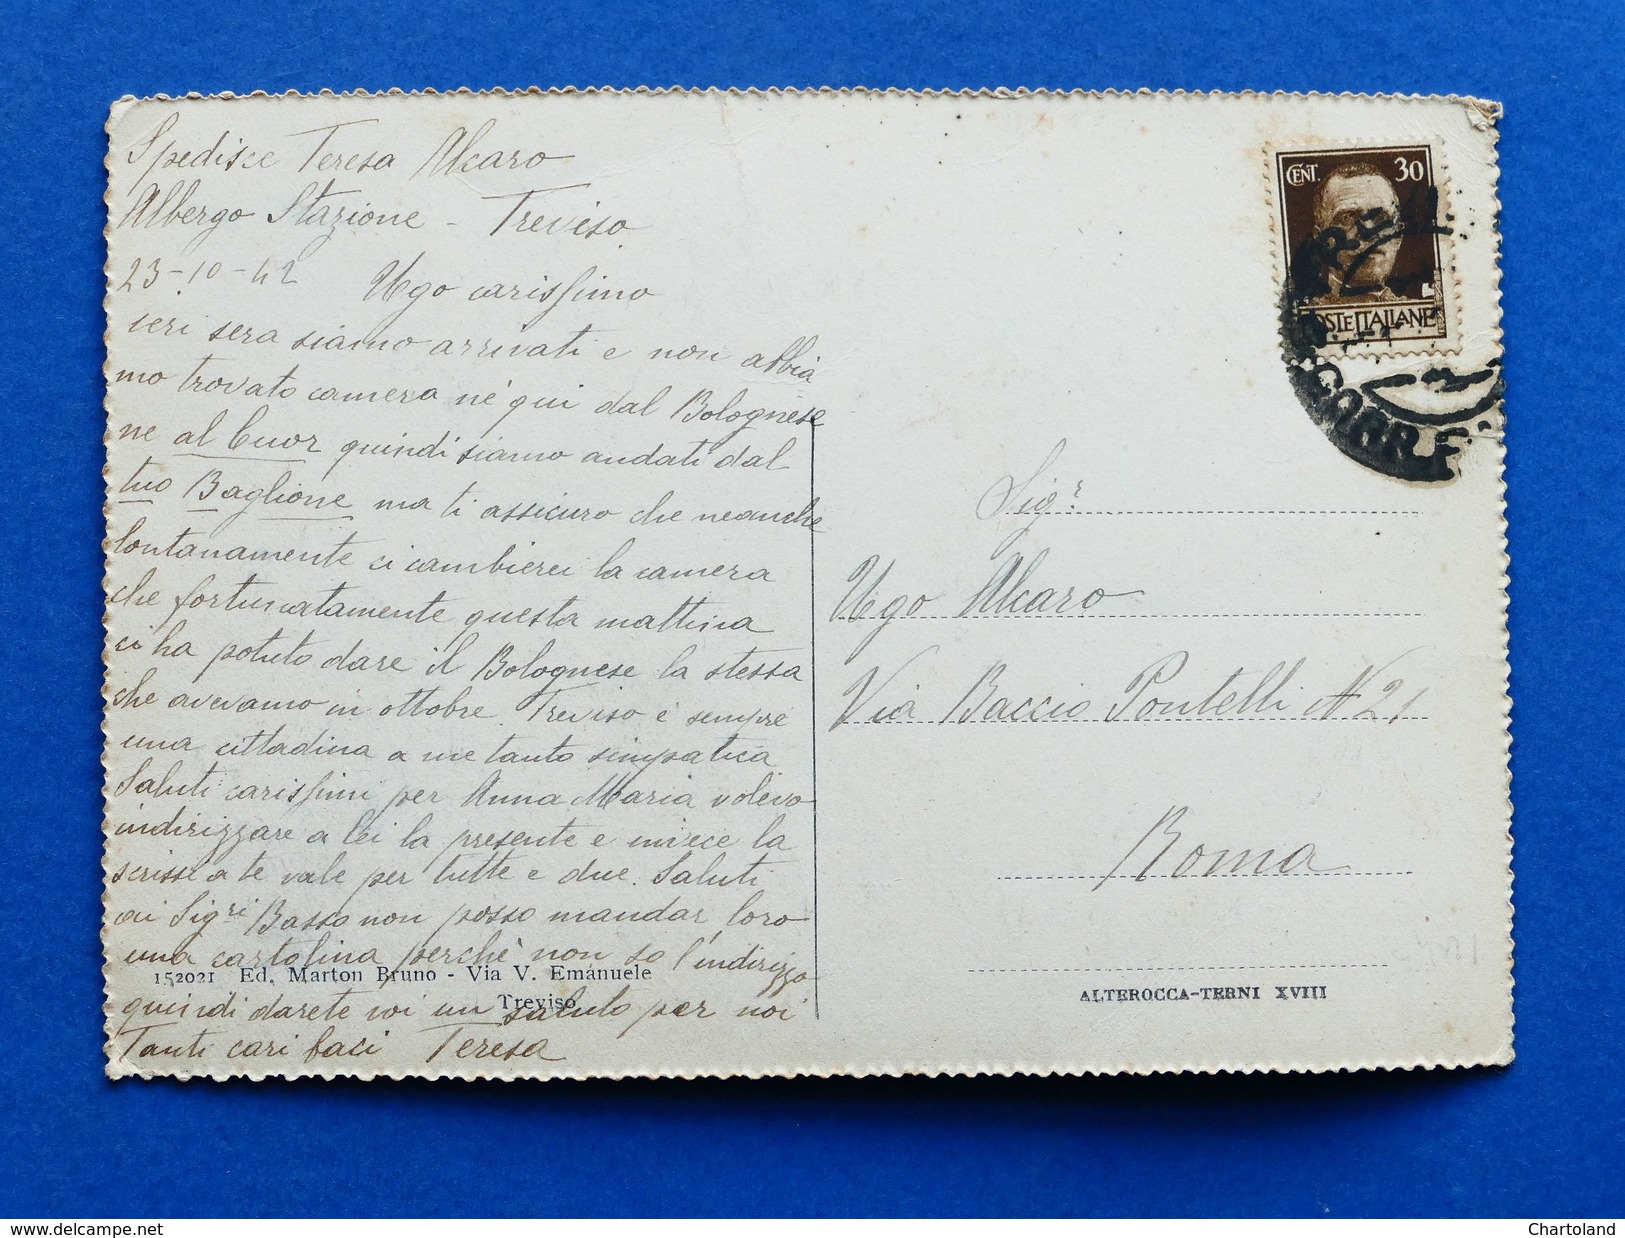 Spedisce Teresa Alcaro
Albergo Stazione - Treviso
23-10-42 Ugo carissimo
ieri sera siamo arrivati e non abbia
mo trovato camera nè qui dal Bolognese
ne al Cuor quindi siamo andati dal
tuo Baglione ma ti assicuro che neanche
lontanamente ci cambierei la camera
che fortunatamente questa mattina
ci ha potuto dare il Bolognese la stessa
che avevamo in ottobre. Treviso è sempre
una cittadina a me tanto simpatica
Saluti carissimi per Anna Maria volevo
indirizzare a lei la presente e invece la
scrissi a te vale per tutte e due. Saluti
ai Sigri Basso non posso mandar loro
una cartolina perchè non so l'indirizzo
152021 Ed. Marton Bruno - Via V. Emanuele
Treviso
quindi darete voi un saluto per noi
Tanti cari baci Teresa
CENT. 30
POSTE ITALIANE
CORR
Sigr
Ugo Alcaro
Via Baccio Pontelli N 21
Roma
ALTEROCCA-TERNI XVIII
Chartoland
www.delcampe.net